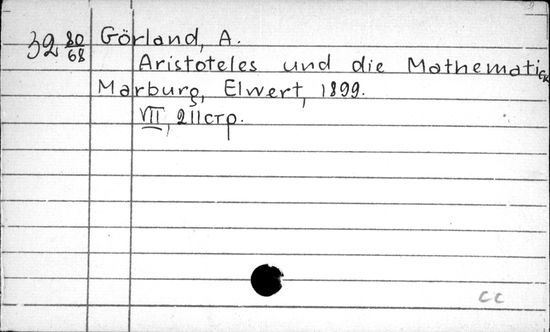 32 80/68 Görland, A.
Aristoteles und die Mathematick
Marburg, Elwert, 1899.
VII, 211стр.
cc